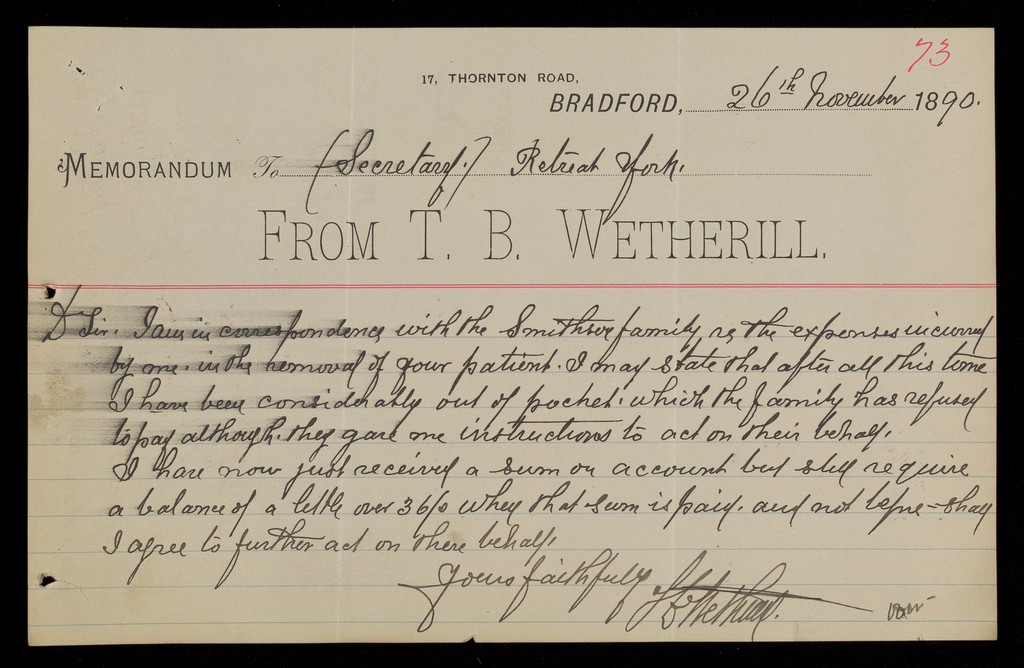 73
17, THORNTON ROAD,
BRADFORD, 26th November 1890.
MEMORANDUM To (Secretary.) Retreat York.
FROM T. B. WETHERILL.
D Sir. I am in correspondence with the Smithson family re the expenses incurred
by me. in the removal of your patient. I may state that after all this time
I have been considerably out of pocket. which the family has refused
to pay although. they gave me instructions to act on their behalf.
I have now just received a sum on account but still require
a balance of a little over 36/0 when that sum is paid. and not before - shall
I agree to further act on there behalf.
Yours faithfully
TB Wetherill.